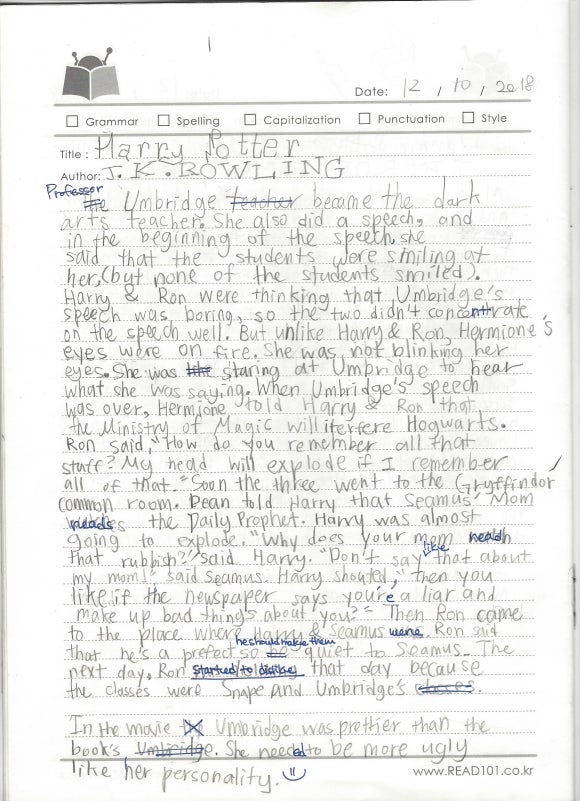 Date: 12 / 10 / 2018
Grammar Spelling Capitalization Punctuation Style
Title : Harry Potter
Author: J. K. ROWLING
Professor
Umbridge teacher became the dark
arts teacher. She also did a speech, and
in the beginning of the speech, she
said that the students were smiling at
her, (but none of the students smiled).
Harry & Ron were thinking that Umbridge's
speech was boring, so the two didn't concentrate
on the speech well. But unlike Harry & Ron, Hermione's
eyes were on fire. She was not blinking her
eyes. She was staring at Umbridge to hear
what she was saying. When Umbridge's speech
was over, Hermione told Harry & Ron that
the Ministry of Magic will iterfere Hogwarts.
Ron said, "How do you remember all that
staff? My head will explode if I remember
all of that." Soon the three went to the Gryffindor
common room. Dean told Harry that Seamus' Mom
reads the Daily Prophet. Harry was almost
going to explode. "Why does your mom read
that rubbish?" said Harry. "Don't say like that about
my mom!" said Seamus. Harry shouted, "then you
like if the newspaper says you're a liar and
make up bad things about you?" Then Ron came
to the place where Harry & Seamus were. Ron said
that he's a prefect so he should make them be quiet to Seamus. The
next day, Ron started to dislike that day because
the classes were Snape and Umbridge's classes.
In the movie Umbridge was prettier than the
book's Umbridge. She needed to be more ugly
like her personality.
www.READ101.co.kr